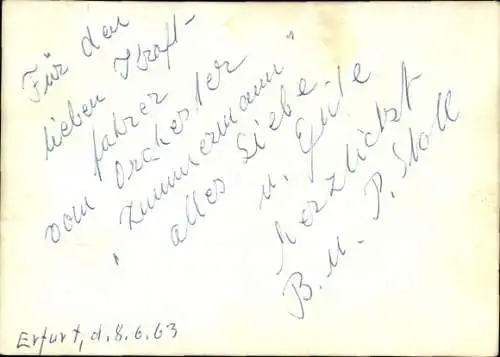 Für den
lieben Kraft-
fahrer
vom Orchester
„Zimmermann"
alles Liebe
u. Gute
herzlichst
B. u. P. Stoll
Erfurt, d. 8.6.63